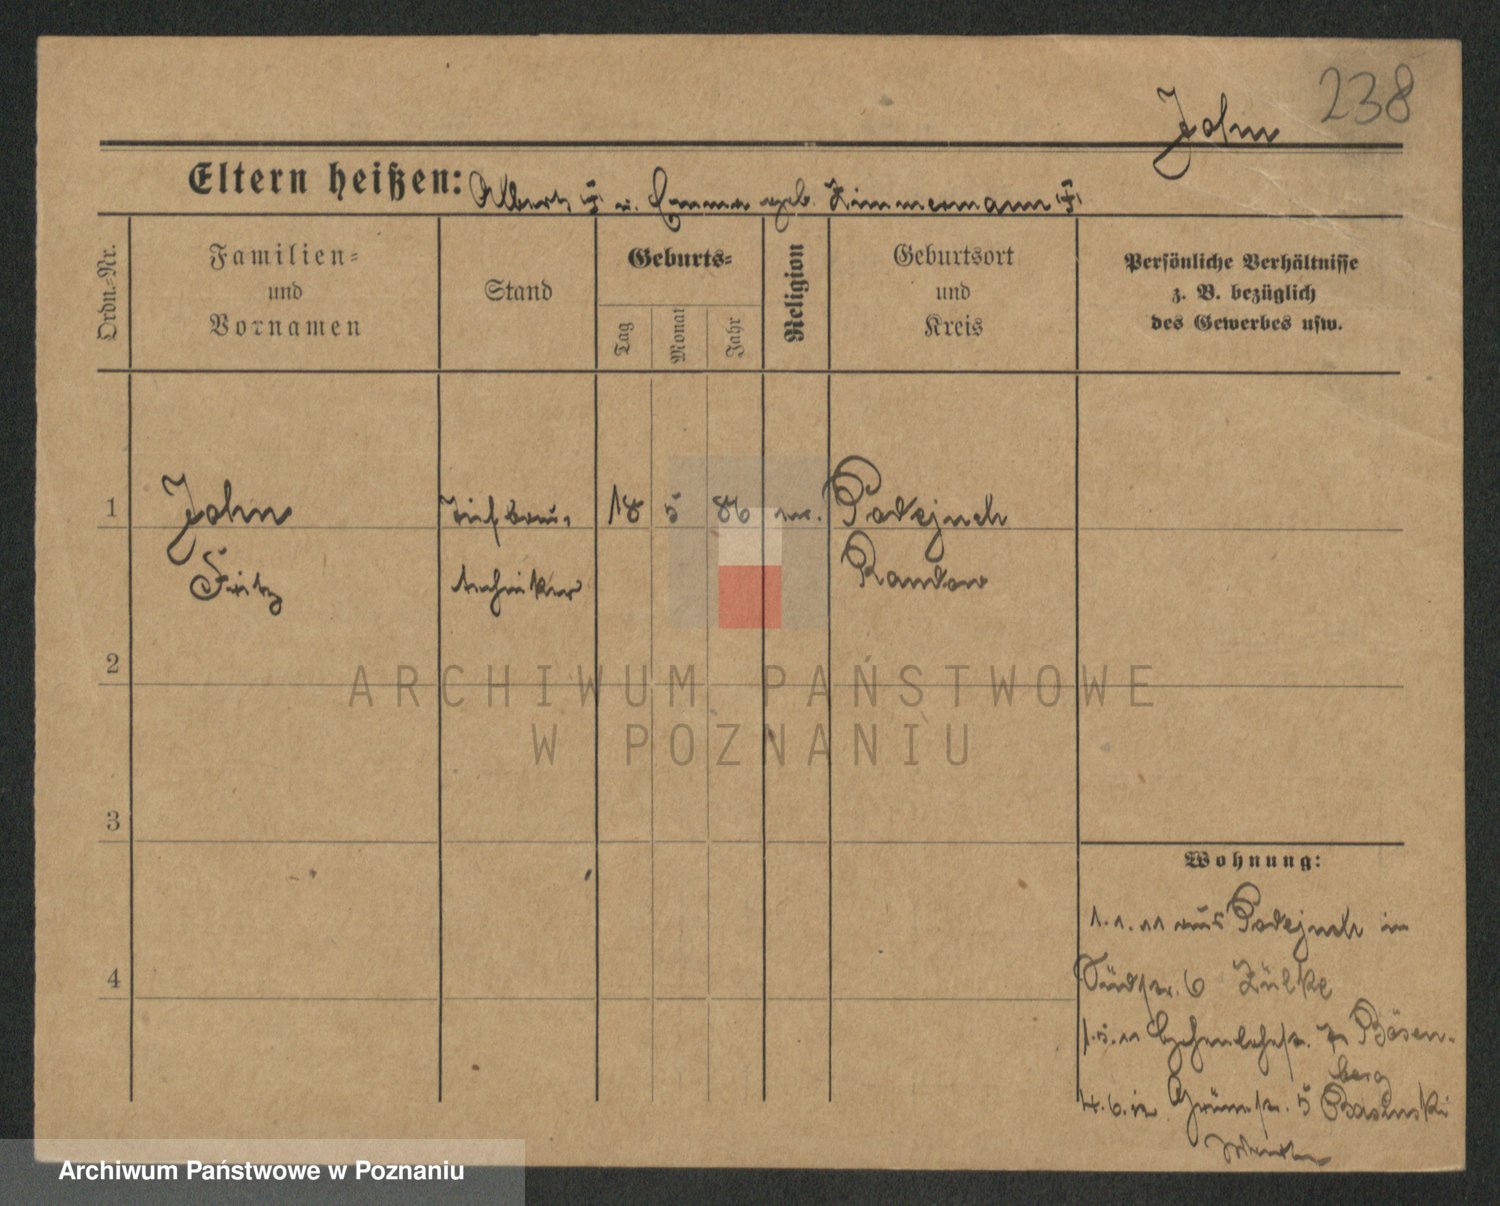 238
John
Eltern heißen: Albert † u. Emma geb. Zimmermann †
Ordn.-Nr.
Familien- und Vornamen
Stand
Geburts-
Tag
Monat
Jahr
Religion
Geburtsort und Kreis
Persönliche Verhältnisse
z. B. bezüglich
des Gewerbes usw.
1 John Tiefbau- 18 5 86 ev. Podejuch
Fritz techniker Randow
2
3
4
Wohnung:
1.1.11 aus Podejuch in
Südstr. 6 Zülke
1.5.11 7 Bösen-
berg
4.6.12 Grünestr. 5
ARCHIWUM PAŃSTWOWE
W POZNANIU
Archiwum Państwowe w Poznaniu